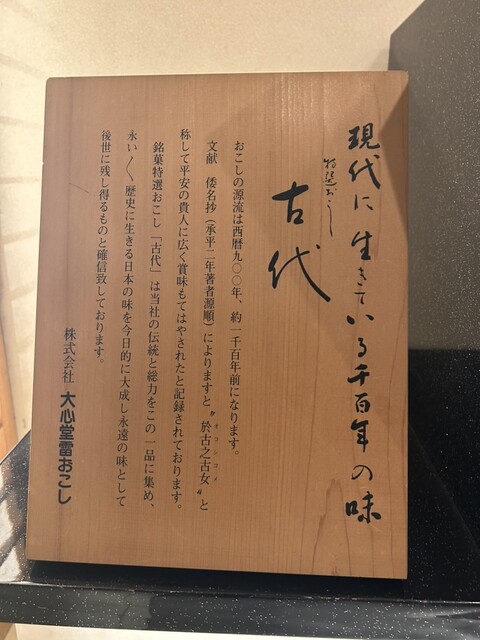 現代に生きている千百年の味
特選おこし
古代
おこしの源流は西暦九〇〇年、約一千百年前になります。
文献 倭名抄(承平二年著者源順)によりますと〝於古之古女〟と
オコシコメ
称して平安の貴人に広く賞味もてはやされたと記録されております。
銘菓特選おこし「古代」は当社の伝統と総力をこの一品に集め、
永い〱歴史に生きる日本の味を今日的に大成し永遠の味として
後世に残し得るものと確信致しております。
株式会社 大心堂雷おこし